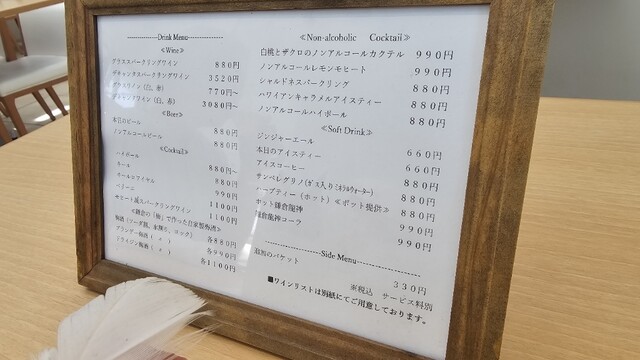 Drink Menu
≪Wine≫
グラススパークリングワイン 880円
デキャンタスパークリングワイン 3520円
グラスワイン（白、赤） 770円～
デキャンタワイン（白、赤） 3080円～
≪Beer≫
本日のビール 880円
ノンアルコールビール 880円
≪Cocktail≫
ハイボール 880円～
キール 880円
キールロワイヤル 990円
ベリーニ 1100円
モヒート風スパークリングワイン 1100円
≪鎌倉の「梅」で作った自家製梅酒≫
梅酒（ソーダ割、水割り、ロック） 各880円
ブランデー梅酒（ 〃 ） 各990円
ドライジン梅酒（ 〃 ） 各1100円
≪Non-alcoholic Cocktail≫
白桃とザクロのノンアルコールカクテル 990円
ノンアルコールレモンモヒート 990円
シャルドネスパークリング 880円
ハワイアンキャラメルアイスティー 880円
ノンアルコールハイボール 880円
≪Soft Drink≫
ジンジャーエール 660円
本日のアイスティー 660円
アイスコーヒー 880円
サンペレグリノ（ガス入りミネラルウォーター） 880円
ハーブティー（ホット）≪ポット提供≫ 880円
ホット鎌倉龍神 990円
鎌倉龍神コーラ 990円
Side Menu
追加のバケット 330円
※税込 サービス料別
■ワインリストは別紙にてご用意しております。